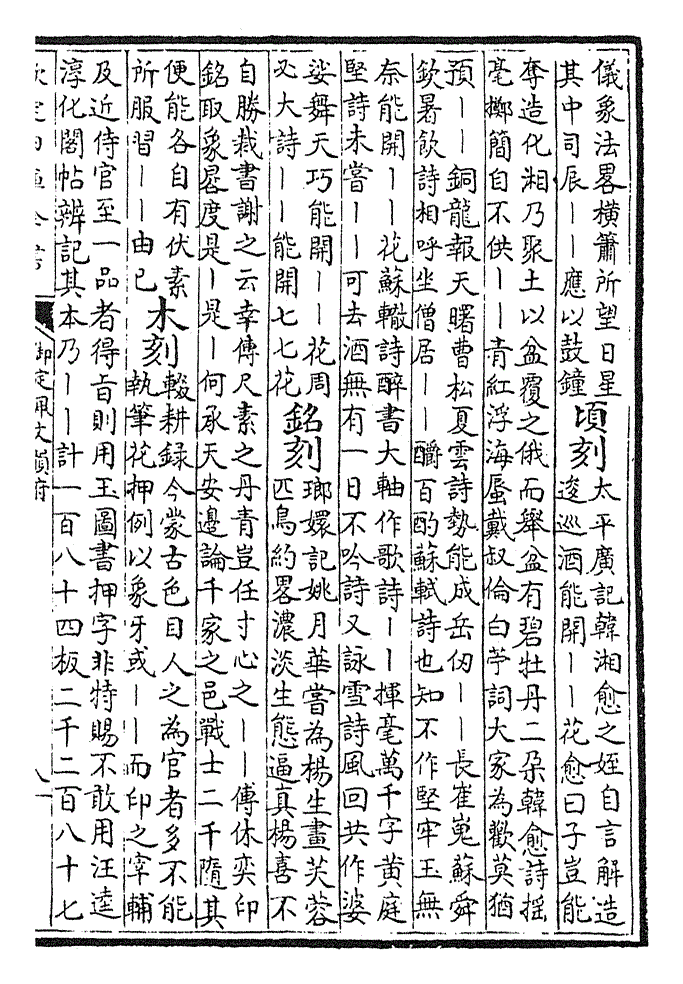 儀象法畧橫簫所望日星
其中司辰丨丨應以鼓鐘
頃刻
太平廣記韓湘愈之姪自言解造
逡巡酒能開丨丨花愈曰子豈能
奪造化湘乃聚土以盆覆之俄而舉盆有碧牡丹二朶韓愈詩揺
毫擲簡自不供丨丨青紅浮海蜃戴叔倫白苧詞大家為歡莫猶
預丨丨銅龍報天曙曹松夏雲詩勢能成岳仞丨丨長崔嵬蘇舜
欽暑飲詩相呼坐僧居丨丨釂百酌蘇軾詩也知不作堅牢玉無
奈能開丨丨花蘇轍詩醉書大軸作歌詩丨丨揮毫萬千字黄庭
堅詩未嘗丨丨可去酒無有一日不吟詩又詠雪詩風回共作婆
娑舞天巧能開丨丨花周
必大詩丨丨能開七七花
銘刻
瑯嬛記姚月華嘗為楊生畫芙蓉
匹鳥約畧濃淡生態逼真楊喜不
自勝裁書謝之云幸傳尺素之丹青豈任寸心之丨丨傅休奕印
銘取象晷度是丨是丨何承天安邊論千家之邑戰士二千隨其
便能各自有伏素
所服習丨丨由已
木刻
輟耕録今蒙古色目人之為官者多不能
執筆花押例以象牙或丨丨而印之宰輔
及近侍官至一品者得旨則用玉圖書押字非特賜不敢用汪逵
淳化閣帖辨記其本乃丨丨計一百八十四板二千二百八十七
欽定四庫全書
御定佩文韻府
八